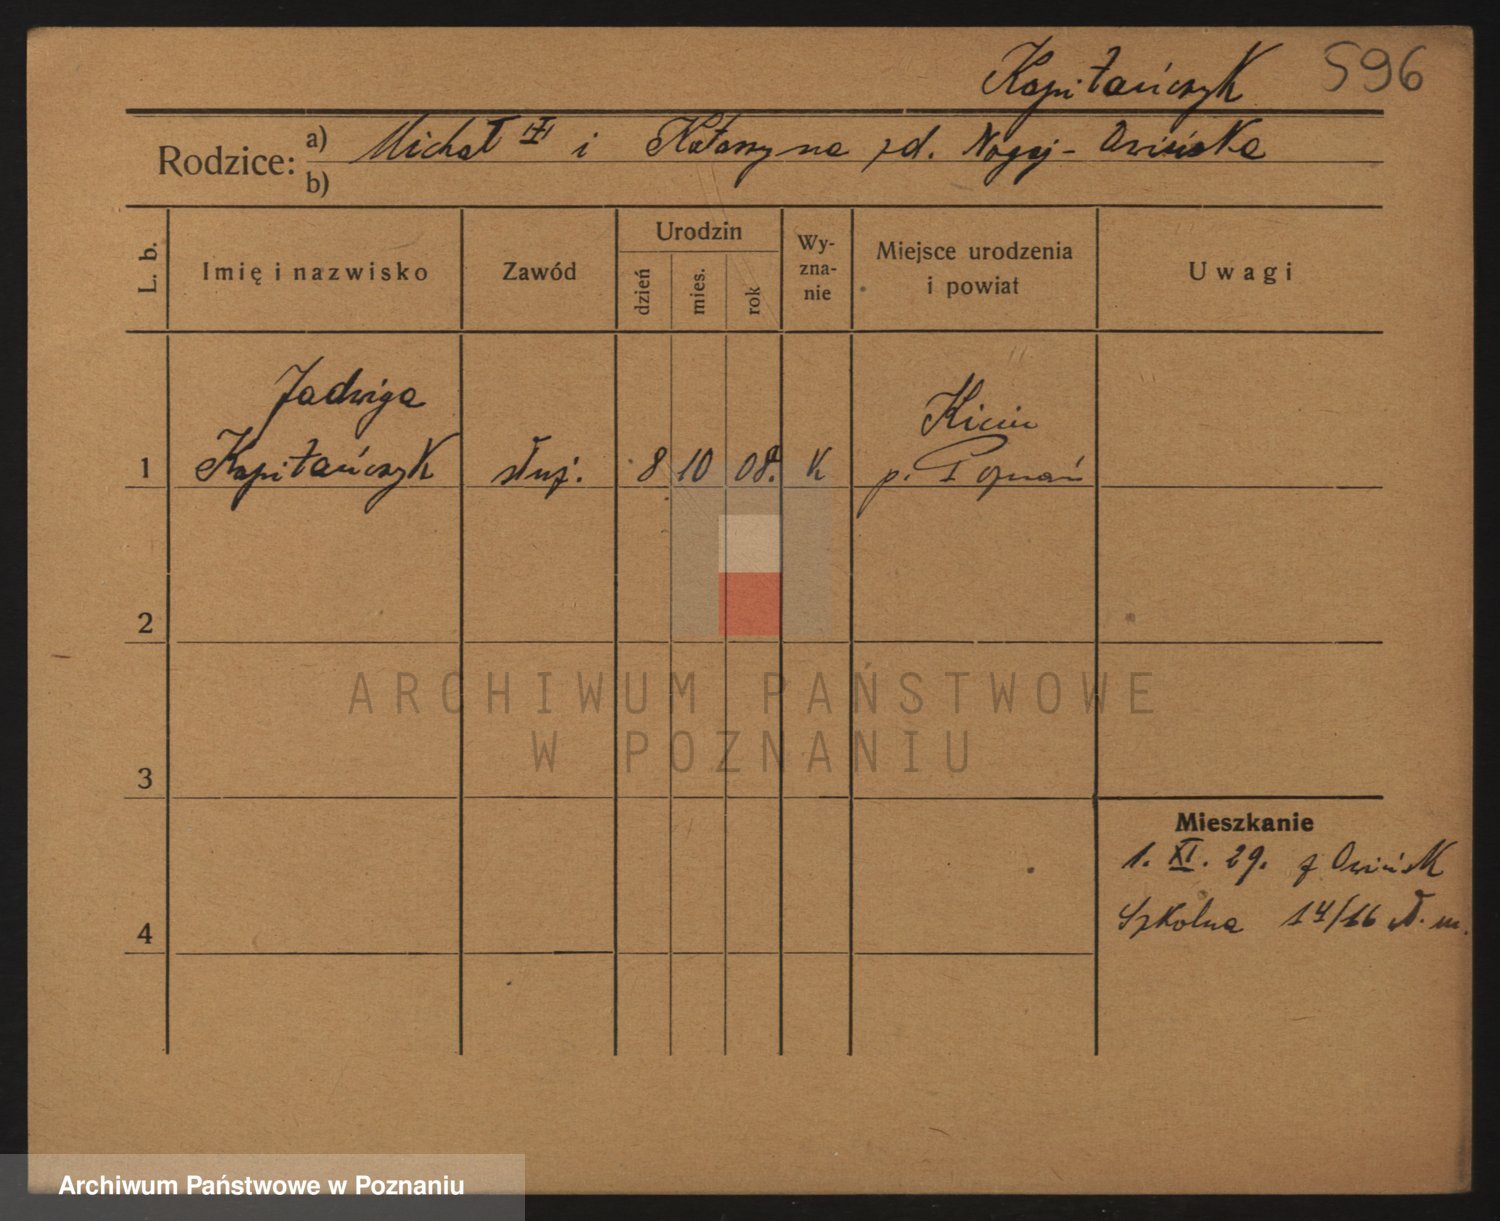 Kapitańczyk 596
Rodzice: a) Michał i Katarzyna zd. Nogaj - Owińska
b)
L. b. Imię i nazwisko Zawód Urodzin dzień mies. rok Wy-zna-nie Miejsce urodzenia i powiat Uwagi
Jadwiga Kicin
1 Kapitańczyk służ. 8 10 08. K p. Poznań
2
ARCHIWUM PAŃSTWOWE
W POZNANIU
3
Mieszkanie
1. XI. 29. z Owińsk
Szkolna 14/16 m.
4
Archiwum Państwowe w Poznaniu